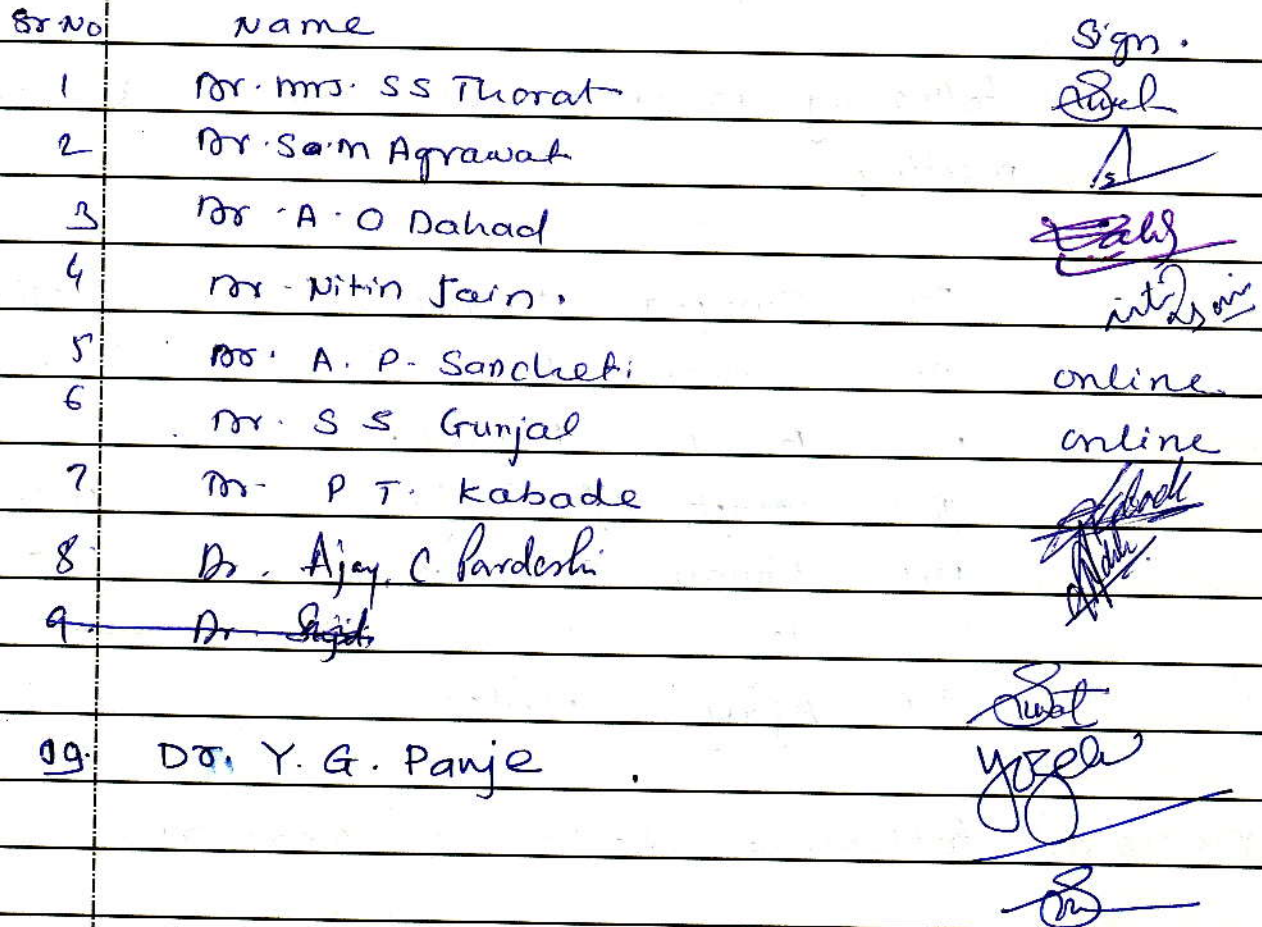 Sr No Name Sign.
1 Dr. Mrs. SS Thorat
2 Dr. S.M Agrawal
3 Dr. A. O Dahad
4 Dr. Nitin Jain.
5 Dr. A. P. Sancheti online.
6 Dr. S S Gunjal online
7 Dr. P T. Kabade Kabade
8 Dr. Ajay. C. Pardeshi
9. Dr.
09. Dr. Y. G. Panje